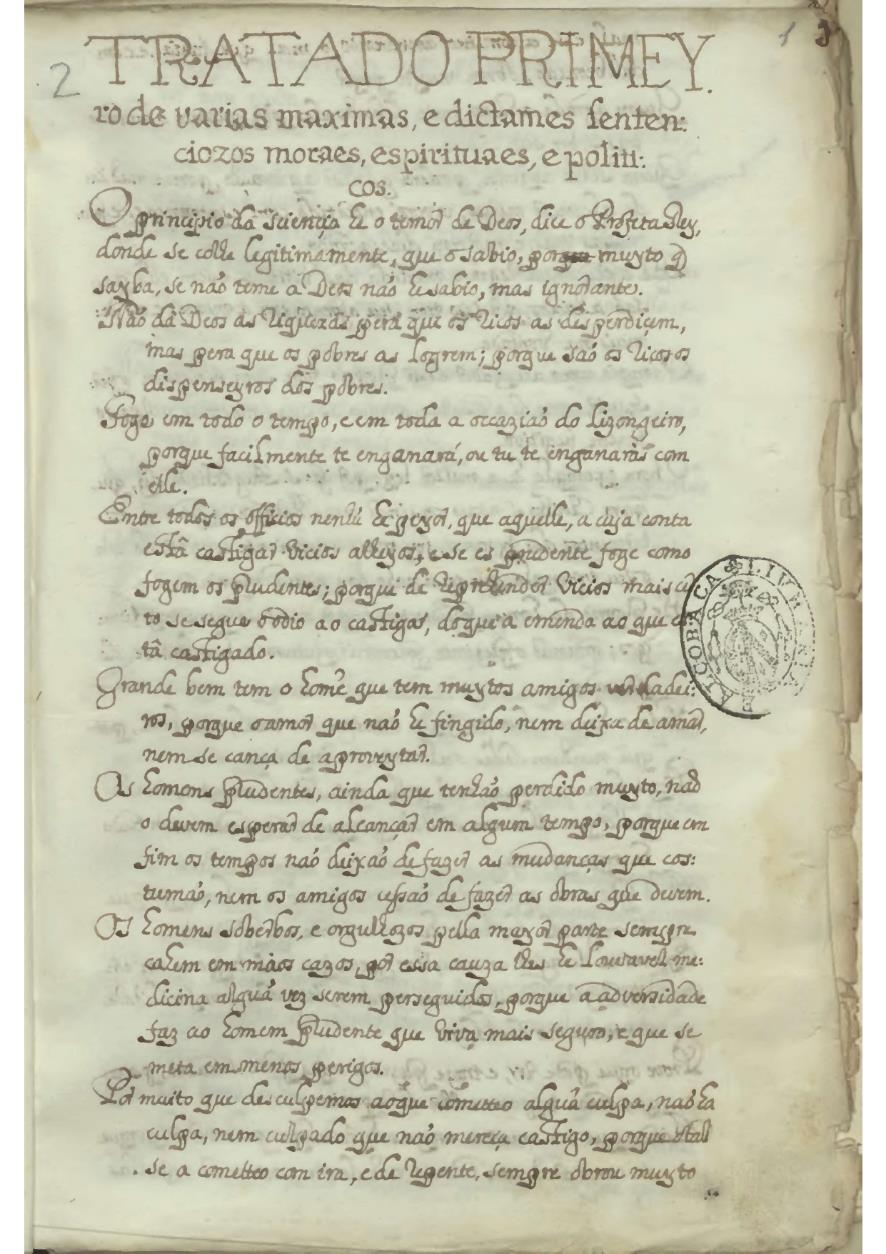 2
1
TRATADO PRIMEY.
ro de varias maximas, e dictames senten:
ciozos moraes, espirituaes, e politi:
cos.
O principio da sciencia he o temor de Deos, dice o Profeta Rey,
donde se colhe legitimamente, que o sabio, por muyto q
sayba, se não teme a Deos não he sabio, mas ignorante.
Não dâ Deos as riquezas pera que os ricos as desperdiçem,
mas pera que os pobres as logrem; porque são os ricos os
dispenseyros dos pobres.
Foge em todo o tempo, e em toda a occazião do lizongeiro,
porque facilmente te enganará, ou tu te enganarás com
elle.
Entre todos os officios nenhũ he peyor, que aquelle, a cuja conta
estâ castigar vicios alheyos, e se es prudente foge como
fogem os prudentes; porque de reprehender vicios mais
to se segue o odio ao castigar, do que a emenda ao que
tâ castigado.
Grande bem tem o home que tem muytos amigos verdadei:
ros, porque o amor que não he fingido, nem deixa de amar,
nem se cança de aproveytar.
Os homens prudentes, ainda que tenhão perdido muyto, não
o devem esperar de alcançar em algum tempo, porque em
fim os tempos não deixão de fazer as mudanças que cos:
tumão, nem os amigos cessão de fazer as obras que devem.
Os homens soberbos, e orgulhozos pella mayor parte sempre
cahem em mâos cazos, por essa cauza lhes he louvavel me:
dicina alguã vez serem perseguidos, porque a adversidade
faz ao homem prudente que viva mais seguro, e que se
meta em menos perigos.
Por muito que desculpemos ao que cometteo alguã culpa, não ha
culpa, nem culpado que não mereça castigo, porque o tal
se a cometteo com ira, e de repente, sempre obrou muyto
ALCOBAÇA LIVRARIA